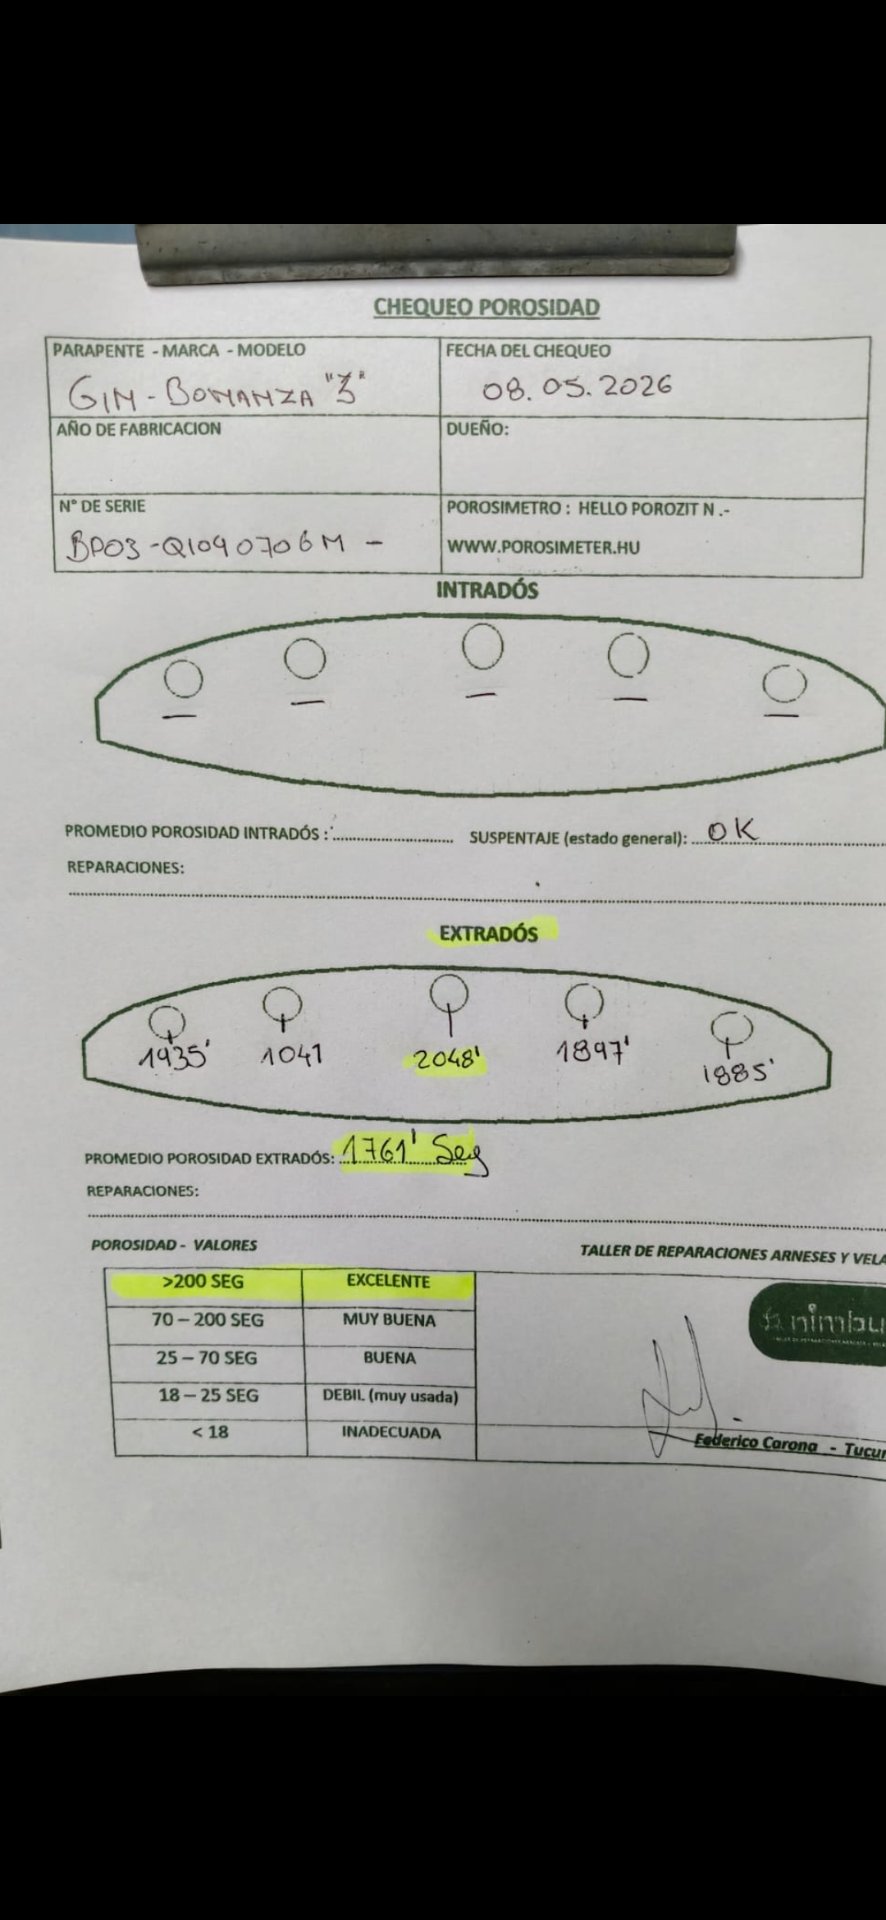 CHEQUEO POROSIDAD
PARAPENTE - MARCA - MODELO
GIN - BONANZA "3"
FECHA DEL CHEQUEO
08.05.2026
AÑO DE FABRICACION
DUEÑO:
N° DE SERIE
BP03-Q1040706M -
POROSIMETRO : HELLO POROZIT N .-
WWW.POROSIMETER.HU
INTRADÓS
PROMEDIO POROSIDAD INTRADÓS :
SUSPENTAJE (estado general): OK
REPARACIONES:
EXTRADÓS
1935' 1041 2048' 1897' 1885'
PROMEDIO POROSIDAD EXTRADÓS: 1761' Seg
REPARACIONES:
POROSIDAD - VALORES
TALLER DE REPARACIONES ARNESES Y VELA
>200 SEG EXCELENTE
70 – 200 SEG MUY BUENA
25 – 70 SEG BUENA
18 – 25 SEG DEBIL (muy usada)
< 18 INADECUADA
nimbu
Federico Carona - Tucu